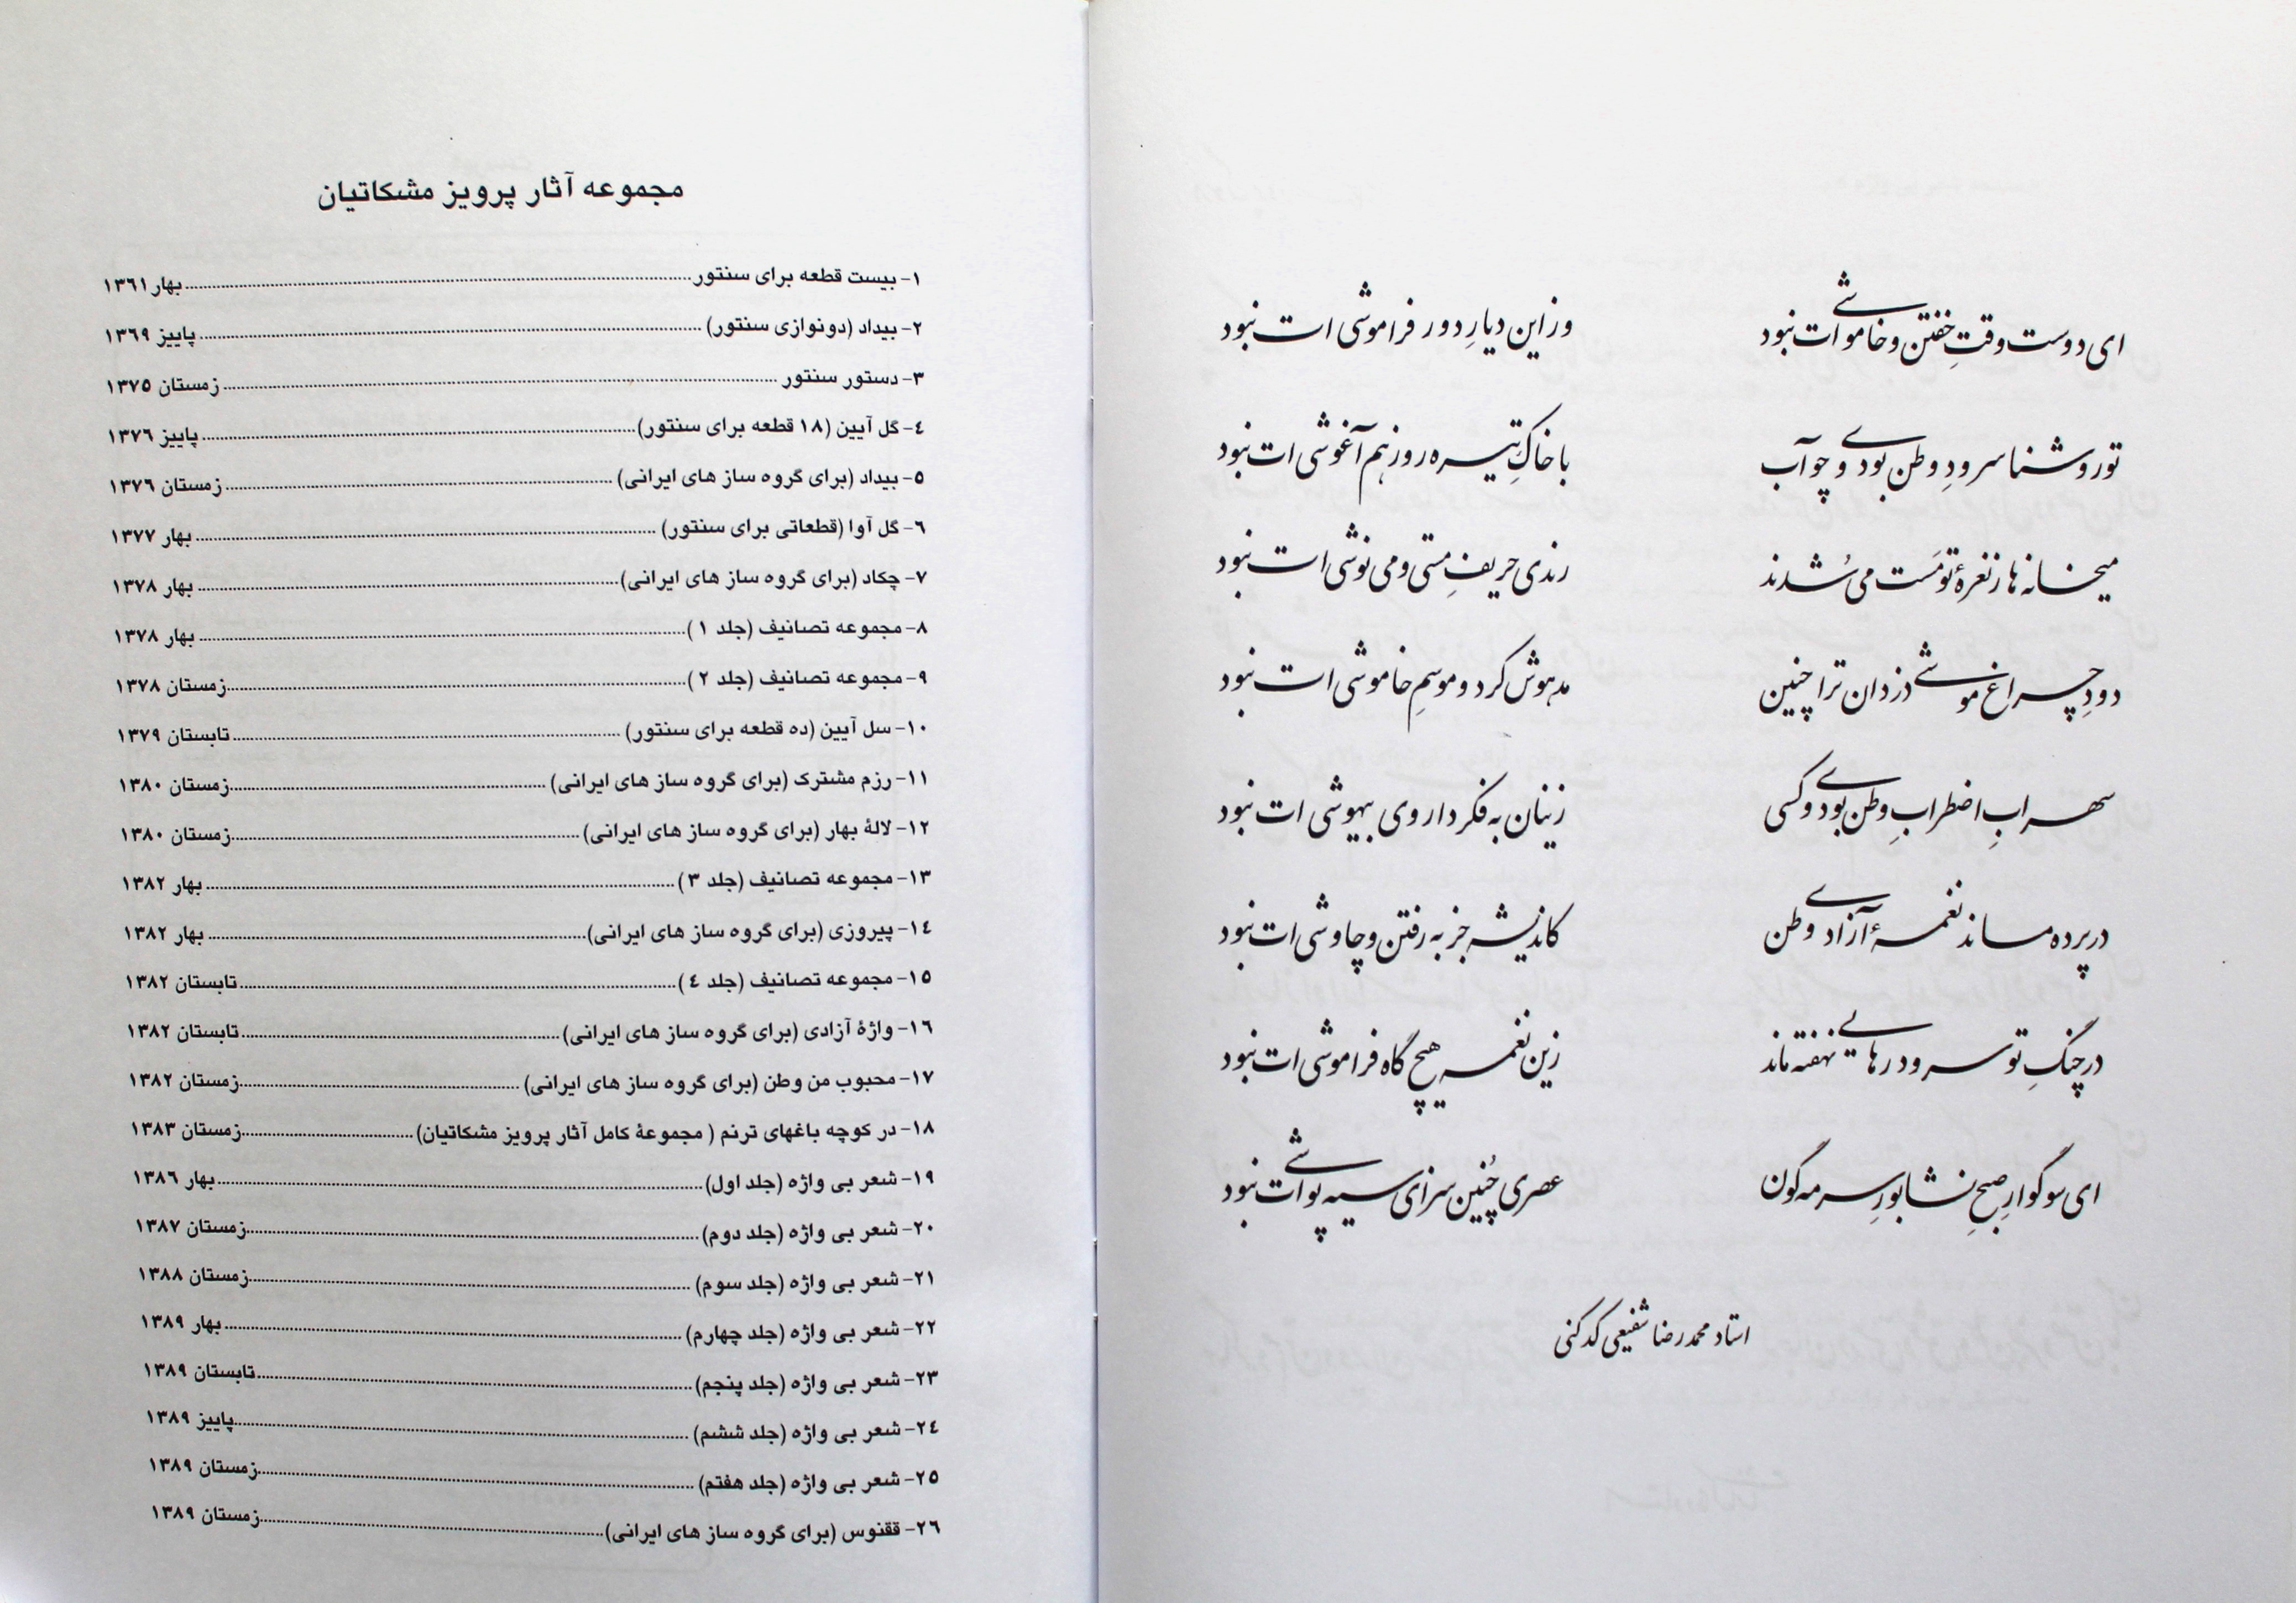 ای دوست وقتِ خفتن و خاموشی ات نبود
وز این دیارِ دور فراموشی ات نبود
تو روشنا سرودِ وطن بودی و چو آب
با خاکِ تیره روز هم آغوشی ات نبود
میخانه ها ز نعرهٔ تو مَست می شُدند
رندی حریفِ مستی و می نوشی ات نبود
دودِ چراغ موشی دزدان ترا چنین
مدهوش کرد و موسمِ خاموشی ات نبود
سهرابِ اضطرابِ وطن بودی و کسی
زینان به فکر داروی بیهوشی ات نبود
در پرده ماند نغمهٔ آزادی وطن
کاندیشه جز به رفتن و چاوشی ات نبود
در چنگِ تو سرود رهایی نهفته ماند
زین نغمه هیچ گاه فراموشی ات نبود
ای سوگوارِ صبحِ نشابورِ سرمه گون
عصری چُنین سزای سیه پوشی ات نبود
استاد محمدرضا شفیعی کدکنی
مجموعه آثار پرویز مشکاتیان
۱- بیست قطعه برای سنتور........بهار ۱۳۶۱
۲- بیداد (دونوازی سنتور)........پاییز ۱۳۶۹
۳- دستور سنتور........زمستان ۱۳۷۵
٤- گل آیین (۱۸ قطعه برای سنتور)........پاییز ۱۳۷۶
۵- بیداد (برای گروه ساز های ایرانی)........زمستان ۱۳۷۶
۶- گل آوا (قطعاتی برای سنتور)........بهار ۱۳۷۷
۷- چکاد (برای گروه ساز های ایرانی)........بهار ۱۳۷۸
۸- مجموعه تصانیف (جلد ۱)........بهار ۱۳۷۸
۹- مجموعه تصانیف (جلد ۲)........زمستان ۱۳۷۸
۱۰- سل آیین (ده قطعه برای سنتور)........تابستان ۱۳۷۹
۱۱- رزم مشترک (برای گروه ساز های ایرانی)........زمستان ۱۳۸۰
۱۲- لالهٔ بهار (برای گروه ساز های ایرانی)........زمستان ۱۳۸۰
۱۳- مجموعه تصانیف (جلد ۳)........بهار ۱۳۸۲
۱٤- پیروزی (برای گروه ساز های ایرانی)........بهار ۱۳۸۲
۱۵- مجموعه تصانیف (جلد ٤)........تابستان ۱۳۸۲
۱۶- واژهٔ آزادی (برای گروه ساز های ایرانی)........تابستان ۱۳۸۲
۱۷- محبوب من وطن (برای گروه ساز های ایرانی)........زمستان ۱۳۸۲
۱۸- در کوچه باغهای ترنم ( مجموعهٔ کامل آثار پرویز مشکاتیان)........زمستان ۱۳۸۳
۱۹- شعر بی واژه (جلد اول)........بهار ۱۳۸۶
۲۰- شعر بی واژه (جلد دوم)........زمستان ۱۳۸۷
۲۱- شعر بی واژه (جلد سوم)........زمستان ۱۳۸۸
۲۲- شعر بی واژه (جلد چهارم)........بهار ۱۳۸۹
۲۳- شعر بی واژه (جلد پنجم)........تابستان ۱۳۸۹
۲٤- شعر بی واژه (جلد ششم)........پاییز ۱۳۸۹
۲۵- شعر بی واژه (جلد هفتم)........زمستان ۱۳۸۹
۲۶- ققنوس (برای گروه ساز های ایرانی)........زمستان ۱۳۸۹